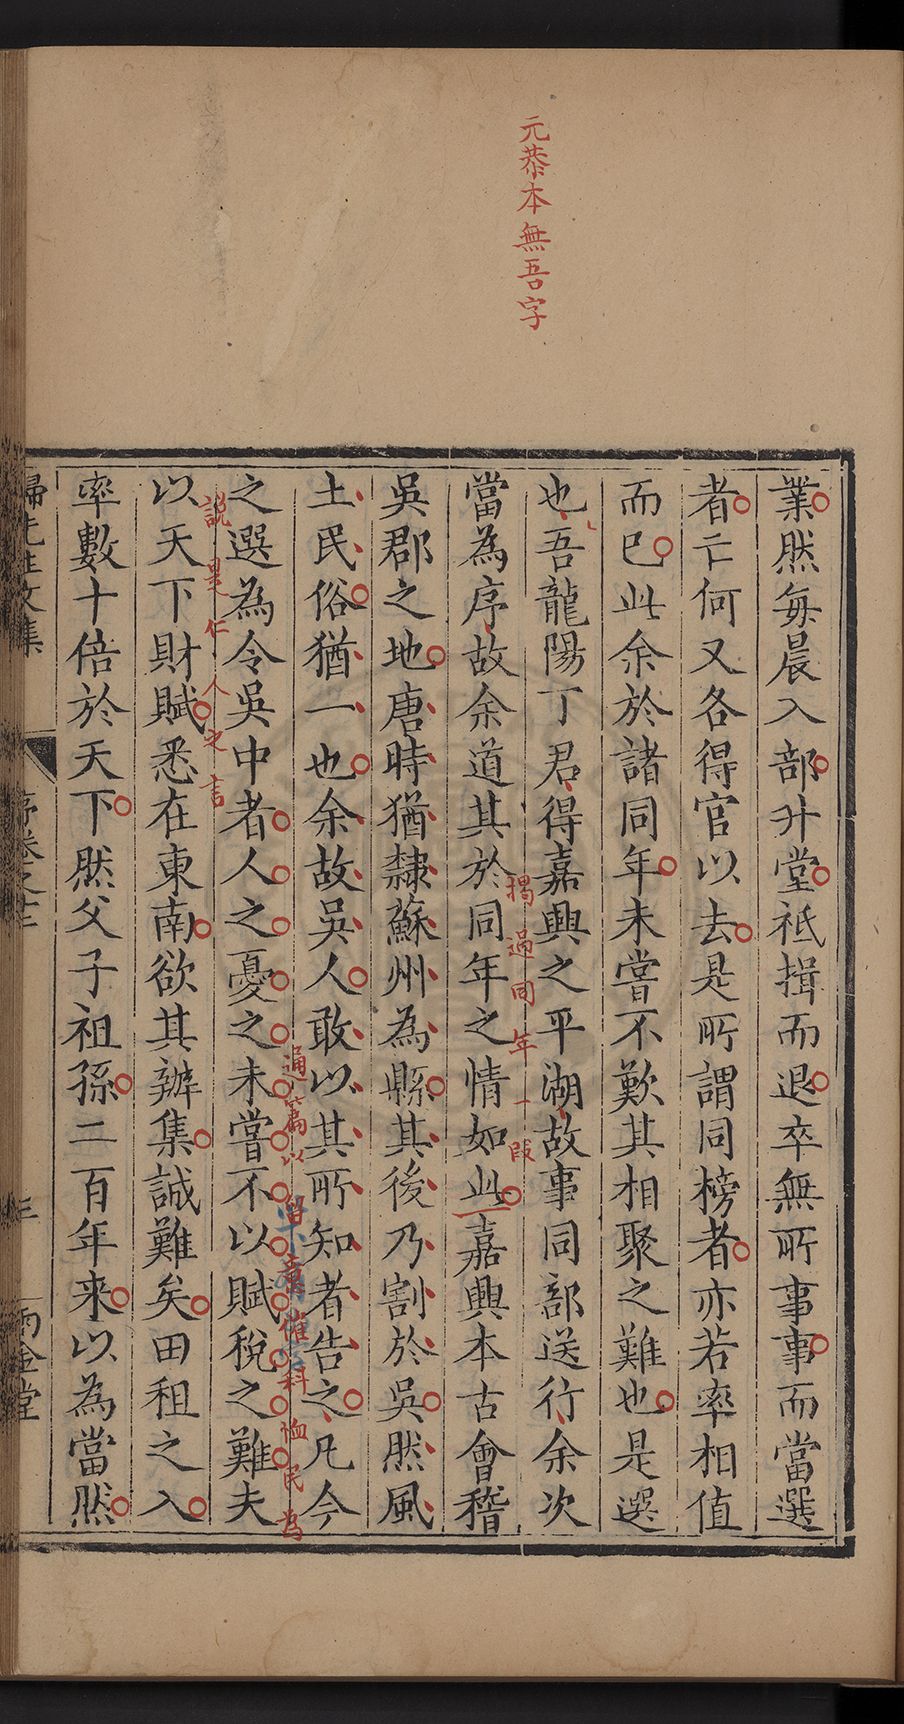 元恭本無吾字
業然每晨入部升堂祗揖而退卒無所事事而當選
者亡何又各得官以去是所謂同榜者亦若率相值
而已此余於諸同年未嘗不歎其相聚之難也是選
也吾龍陽丁君得嘉興之平湖故事同部送行余次
當為序故余道其於同年之情如此嘉興本古會稽
揭過同年一段
吳郡之地唐時猶隸蘇州為縣其後乃割於吳然風
土民俗猶一也余故吳人敢以其所知者告之凡今
通篇以
催科恤民為
之選為令吳中者人之憂之未嘗不以賦稅之難夫
說是仁人之言
以天下財賦悉在東南欲其辦集誠難矣田租之入
率數十倍於天下然父子祖孫二百年来以為當然
歸先生文集
序卷之十二